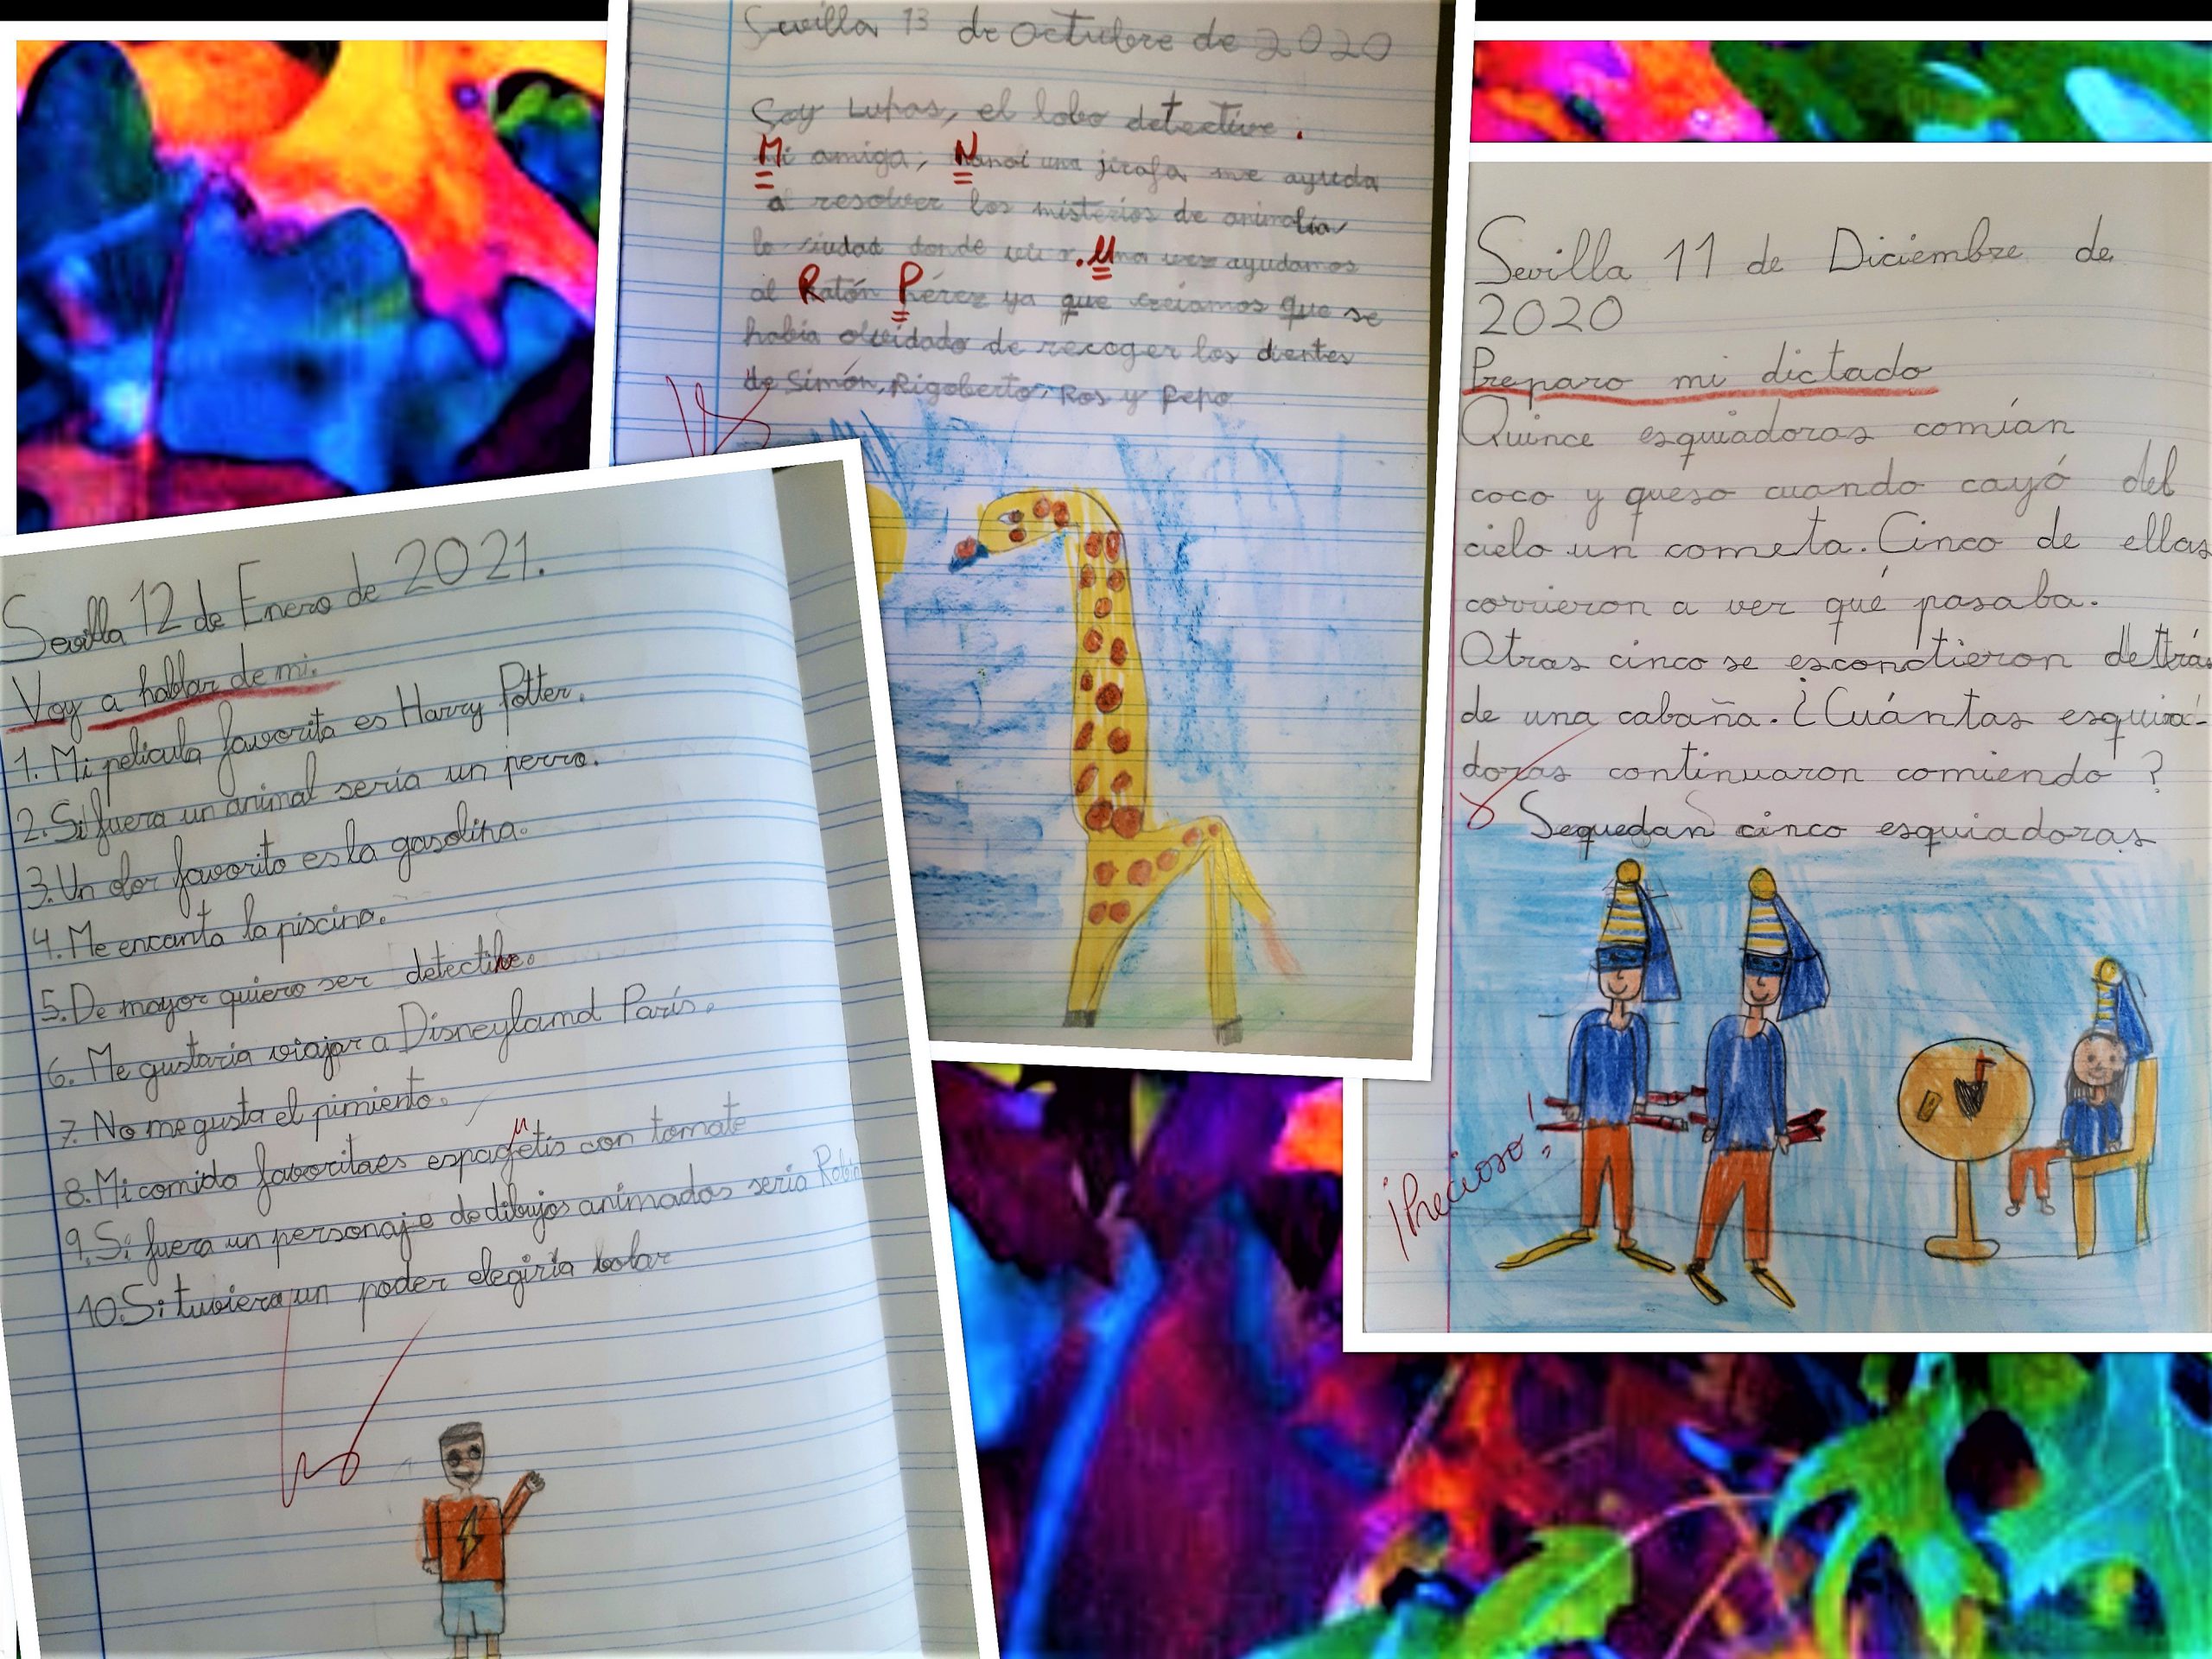 Sevilla 13 de Octubre de 2020
Soy Lupas, el lobo detective.
Mi amiga, Nanoi una jirafa me ayuda
a resolver los misterios de animalia
la ciudad donde vivo. Una vez ayudamos
al Ratón Pérez ya que creíamos que se
había olvidado de recoger los dientes
de Simón, Rigoberto, Ros y Pepo
Sevilla 12 de Enero de 2021.
Voy a hablar de mi.
1. Mi pelicula favorita es Harry Potter.
2. Si fuera un animal sería un perro.
3. Un olor favorito es la gasolina.
4. Me encanta la piscina.
5. De mayor quiero ser detective.
6. Me gustaría viajar a Disneyland París.
7. No me gusta el pimiento.
8. Mi comida favorita es espaguetis con tomate
9. Si fuera un personaje de dibujos animados sería Robin
10. Si tuviera un poder elegiría bolar
Sevilla 11 de Diciembre de
2020
Preparo mi dictado
Quince esquiadoras comían
coco y queso cuando cayó del
cielo un cometa. Cinco de ellas
corrieron a ver qué pasaba.
Otras cinco se escondieron detrás
de una cabaña. ¿Cuántas esquia-
doras continuaron comiendo?
Se quedan cinco esquiadoras
¡Precioso!